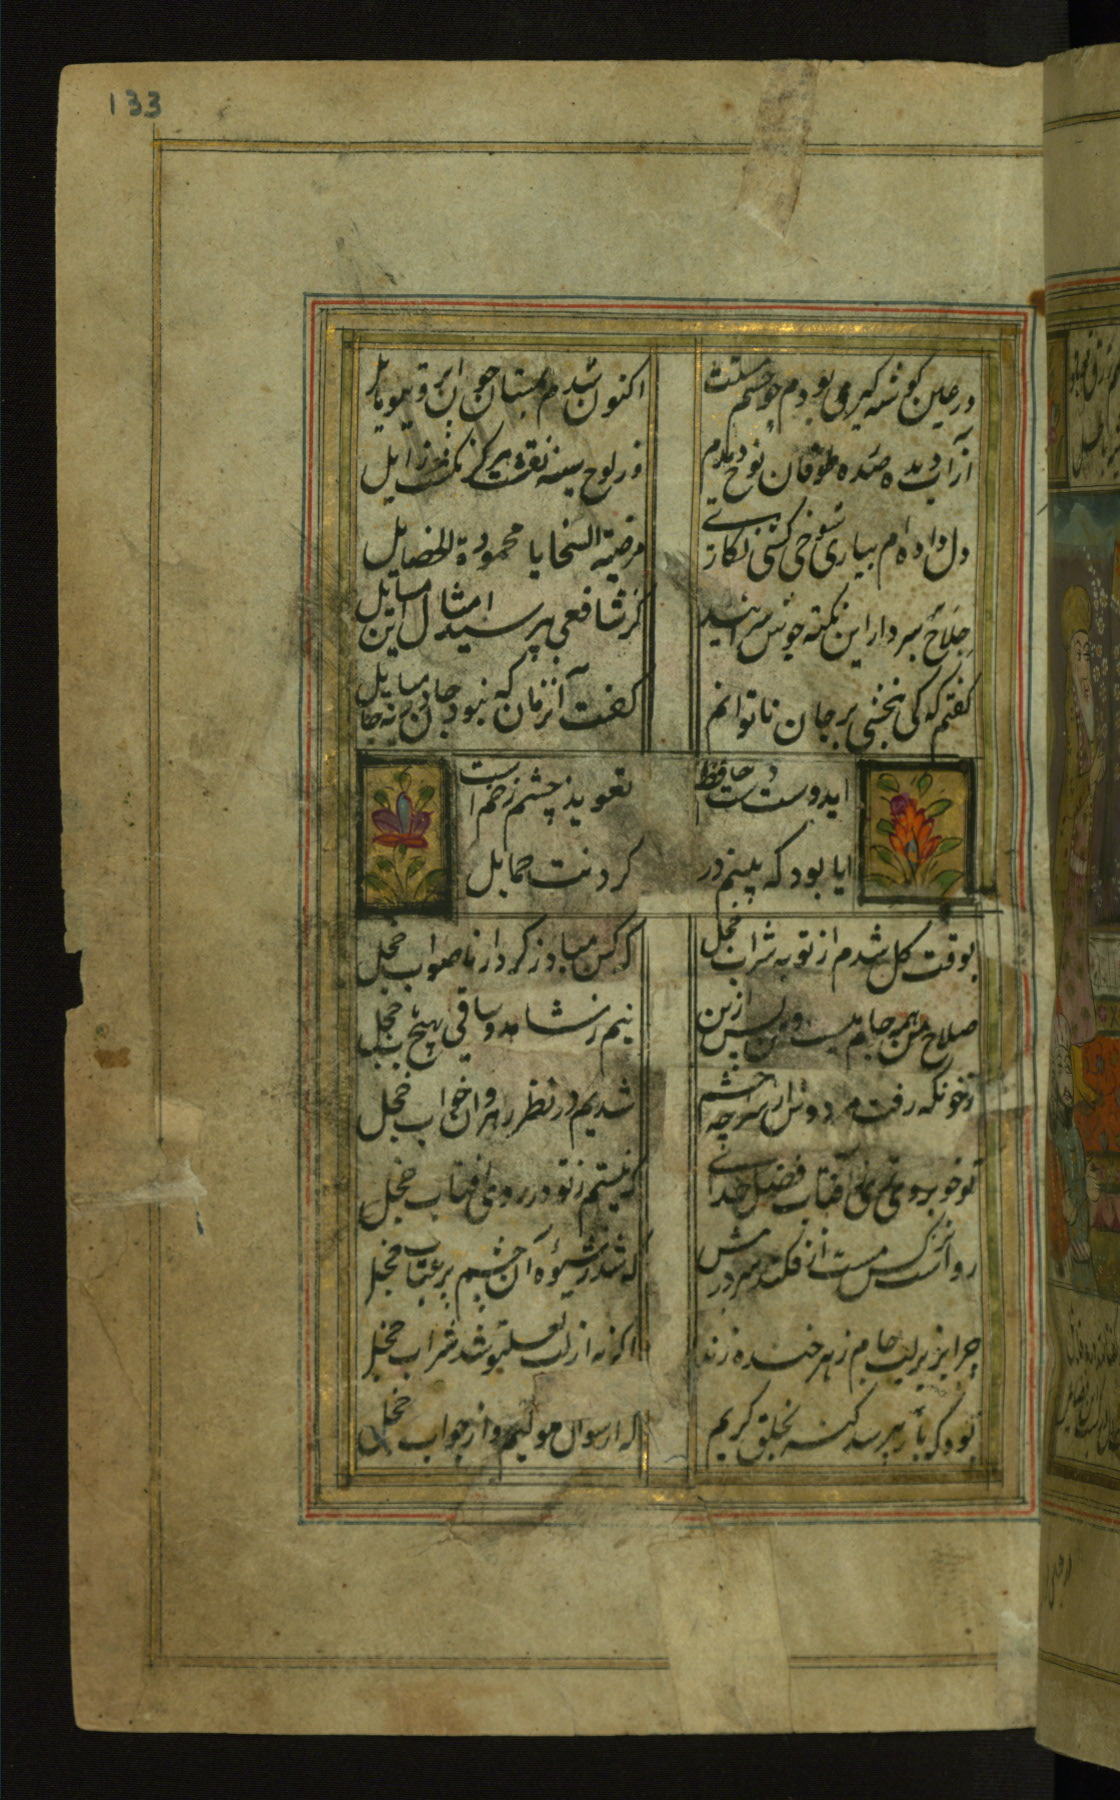 133
در عین گوشه گیری بودم چو چشم مستت
اکنون شدم بمستان چون ابروی تو مایل
از آب دیده صد ره طوفان نوح دیدم
وز لوح سینه نقشت هرگز نکشت زایل
دل داده ام بیاری شوخی کشی نکاری
مرضیة السخایا محمودة الخصایل
حلاج بر سر دار این نکته خوش سراید
کز شافعی نپرسید امثال این مسایل
کفتم که کی ببخشی بر جان ناتوانم
کفت آنزمان که نبود جان در میانه حایل
ایدوست دست حافظ
تعویذ چشم زخم است
ایا بود که بینم در
کردنت حمایل
بوقت کل شدم از توبه شراب خجل
که کس مباد ز کردار ناصواب خجل
صلاح من همه جام میست و من پس ازین
نیم ز شاهد و ساقی بهیچ باب خجل
ز خون که رفت دوش از سراچه چشم
شدیم در نظر رهروان خواب خجل
تو خوبروی تری ز آفتاب فضل خدای
که نیستم ز تو در روی آفتاب خجل
رواست نرکس مست ار فکند سر در پیش
که شد ز شیوه آن چشم پر عتاب خجل
چرا بزیر لب جام زهر خنده زند
اکر نه از لب لعل تو شد شراب خجل
بود که یار نپرسد کنه بخلق کریم
که از سوال ملولیم و از جواب خجل